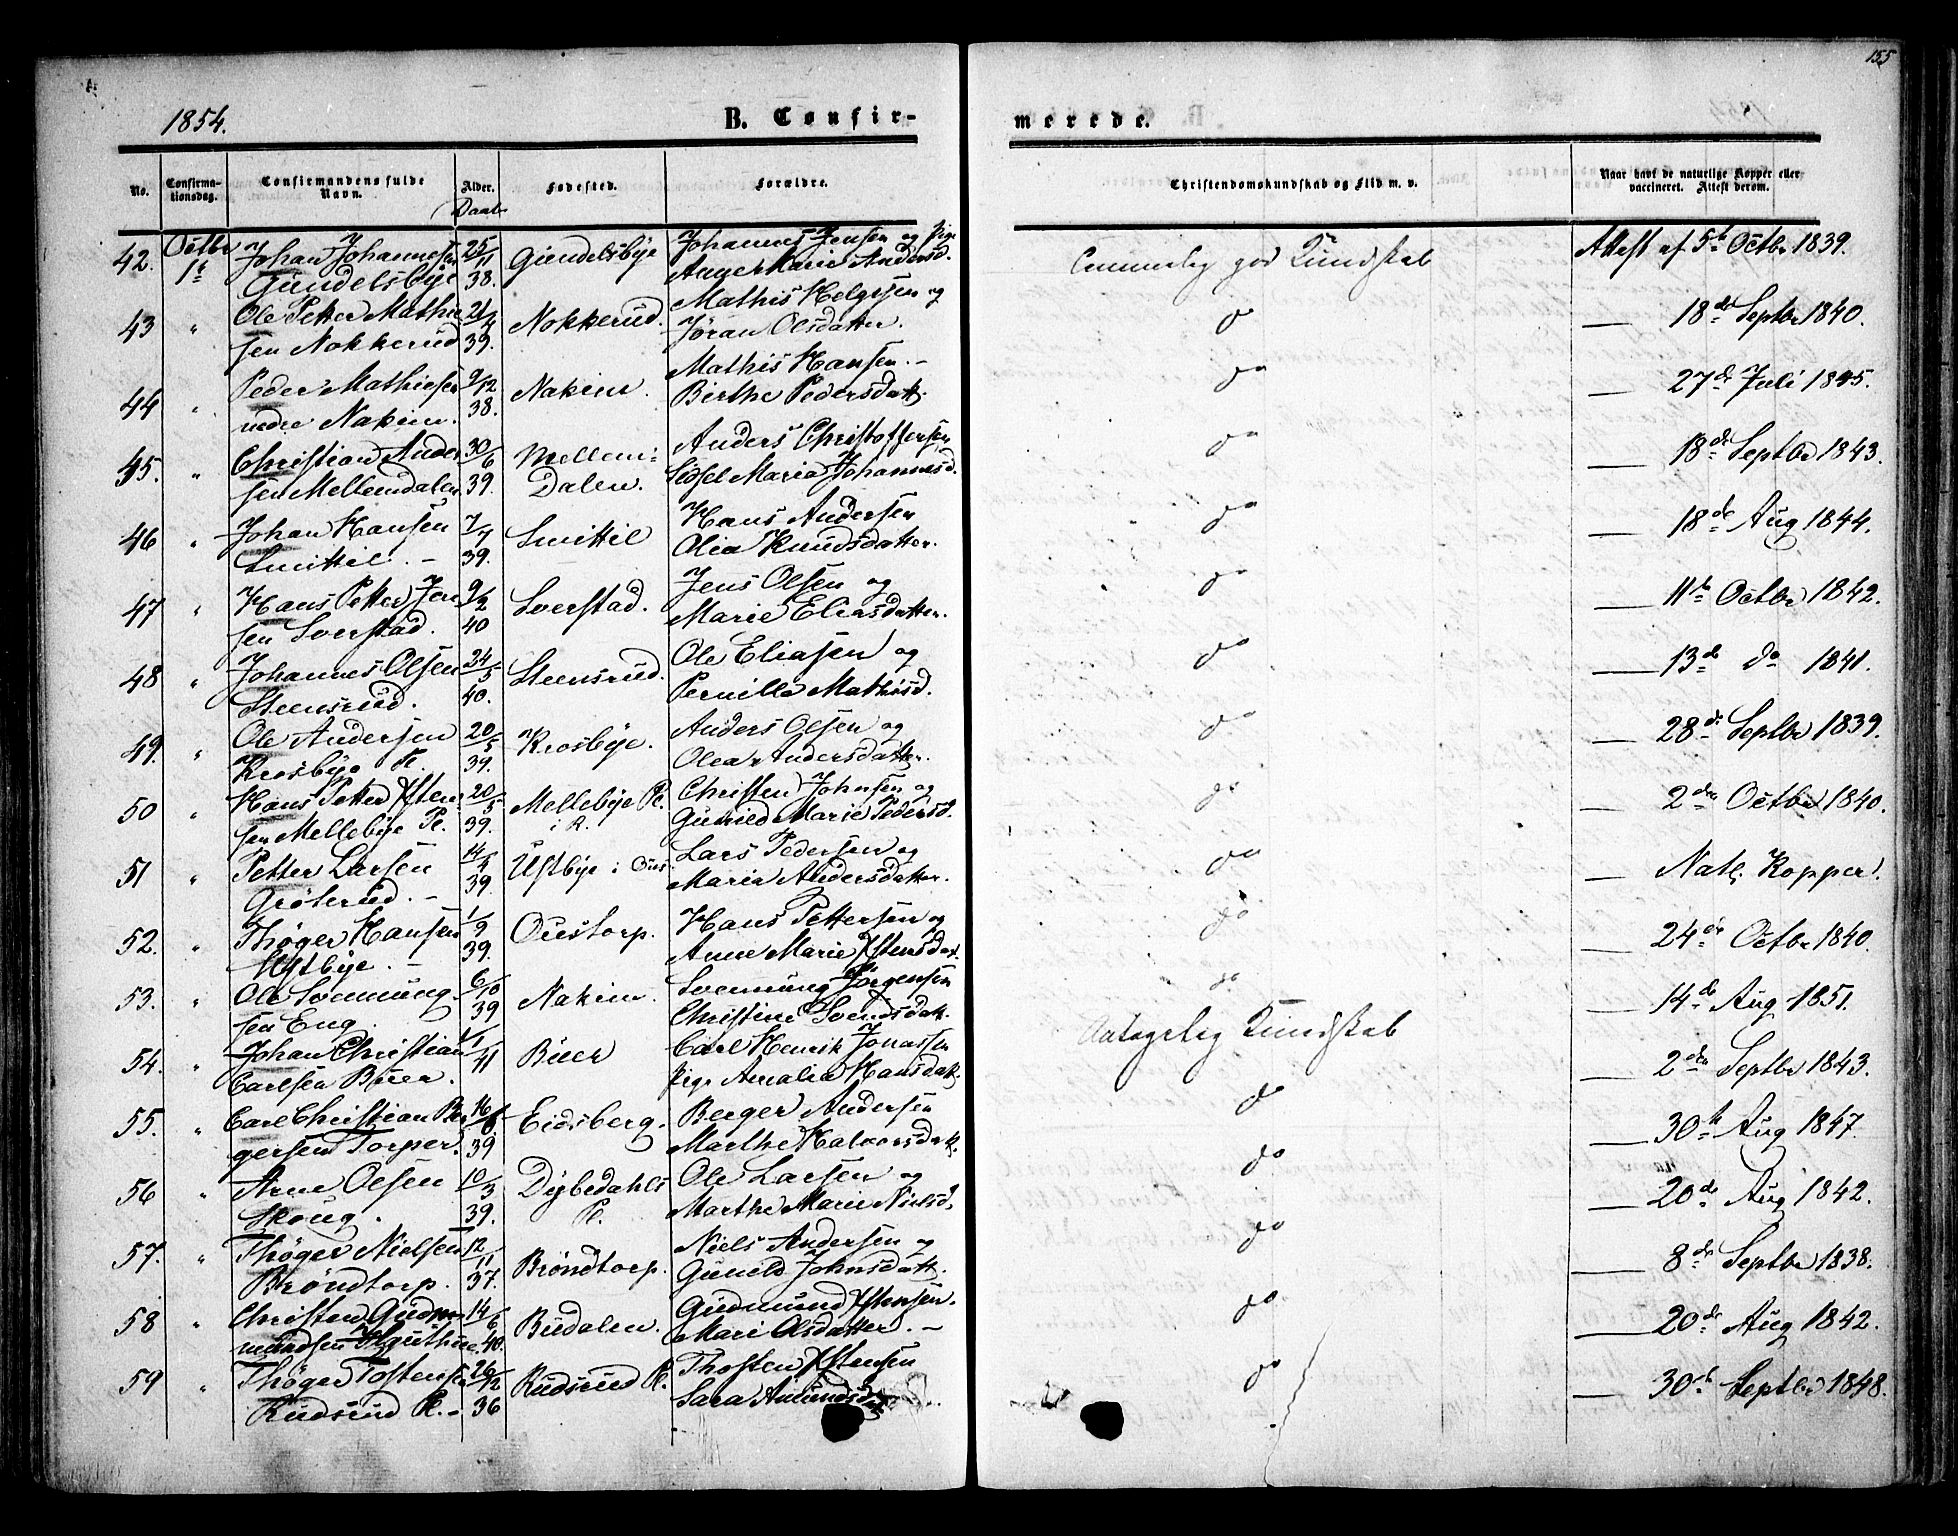 155
1854.
B. Confir-
merede.
No.
Confirma-
tionsdag.
Confirmandens fulde
Navn.
Alder.
Daab
Fødested.
Forældre.
Christendomskundskab og Flid m. v.
Naar havt de naturlige Kopper eller
vaccineret. Attest derom.
42. Octbr 1t Johan Johannesen 25/11 38. Gundelsbye Johannes Jensen og Pige
Gundelsbye Ange Marie Andersd.
Temmelig god Kundskab Attest af 5te Octbr 1839.
43 " Ole Petter Mathie 21/4 39. Nokkerud. Mathis Helgesen og
sen Nokkerud Jøran Olsdatter.
do — 18de Septbr 1840.
44 " Peder Mathiesen 9/12 38. Nakim Mathis Hansen. -
nedre Nakim. Birthe Pedersdatt.
do — 27de Juli 1845.
45. " Christian Ander 30/6 39. Mellem- Anders Christoffersen
sen Mellemdalen Dalen. Sidsel Maria Johannesd.
do — 18de Septbr 1843.
46 " Johan Hansen 7/7 39. Smittil Hans Andersen
Smittil. - Olia Knudsdatter.
do — 18de Aug 1844.
47 " Hans Petter Jen 9/2 40 Sverstad. Jens Olsen og
sen Sverstad. Marie Eliasdatter.
do — 11te Octbr 1842.
48 " Johannes Olsen 24/3 40. Steensrud. Ole Eliasen og
Steensrud. Pernille Mathisd.
do — 13de do 1841.
49. " Ole Andersen 20/5 39. Krosbye. Anders Olsen og
Krosbye Pl. Olea Andersdatter.
do — 28de Septbr 1839.
50 " Hans Petter Christen 20/5 39. Mellebye Pl. Christen Johnsen og
sen Mellebye Pl. i R. Gunild Marie Pedersd.
do — 2den Octbr 1840.
51 " Petter Larsen 14/4 39. Ustbye i Ous Lars Pedersen og
Gröterud. - Maria Andersdatter.
do — Natl. Kopper.
52. " Thøger Hansen 1/9 39. Oustorp. Hans Pettersen og
Ystbye. - Anne Marie Ystensdat.
do — 24de Octbr 1840.
53. " Ole Svennung 6/10 39 Nakim. Svennung Jørgensen
sen Eng. Christine Svendsdat.
do — 14de Aug 1851.
54. " Johan Christian 1/1 41 Buer Carl Henrik Jonassen
Carlsen Buer. Pige Amalia Hansdat.
Antagelig Kundskab — 2den Septbr 1843.
55. " Carl Christian Ber 16/8 39 Eidsberg. Berger Andersen
gersen Torper. Marthe Halvorsdat.
do — 30te Aug 1847.
56 " Arne Olsen 10/3 39. Dybedahls Ole Larsen og
Skoug. Pl. Marthe Marie Nielsd.
do — 20de Aug 1842.
57. " Thøger Nielsen 12/11 37. Bröndtorp. Niels Andersen og
Bröndtorp. Gunild Johnsdatt.
do — 8de Septbr 1838.
58 " Christen Gudm 14/6 40. Budalen. Gudmund Ystensen.
mundsen Mari Olsdatter. -
do — 20de Aug 1842.
59 " Thøger Tostensen 26/12 36 Rudsrud Pl. Thosten Ystensen
Rudsrud Pl. - Sara Amundsdat
do — 30te Septbr 1848.